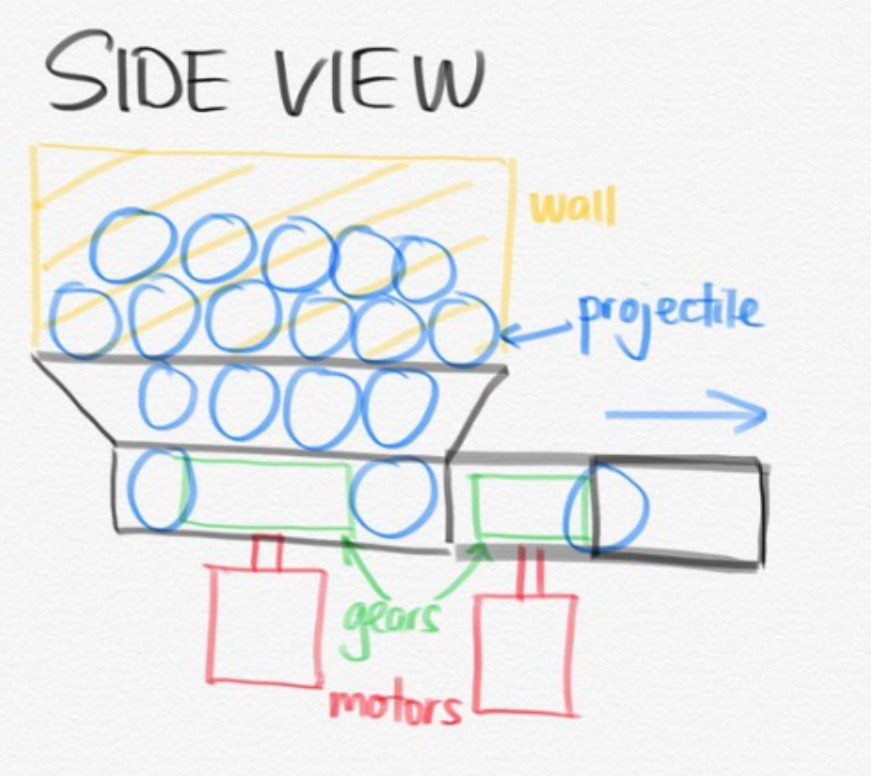 SIDE VIEW
wall
projectile
gears
motors